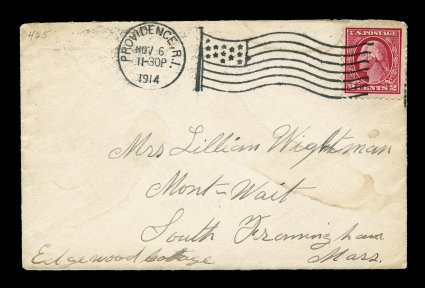 425
PROVIDENCE, R.I.
NOV 6
11-30P
1914
U.S. POSTAGE
2 CENTS 2
Mrs Lillian Wightman
Mont-Wait
South Framingham
Edgewood Cottage Mass.